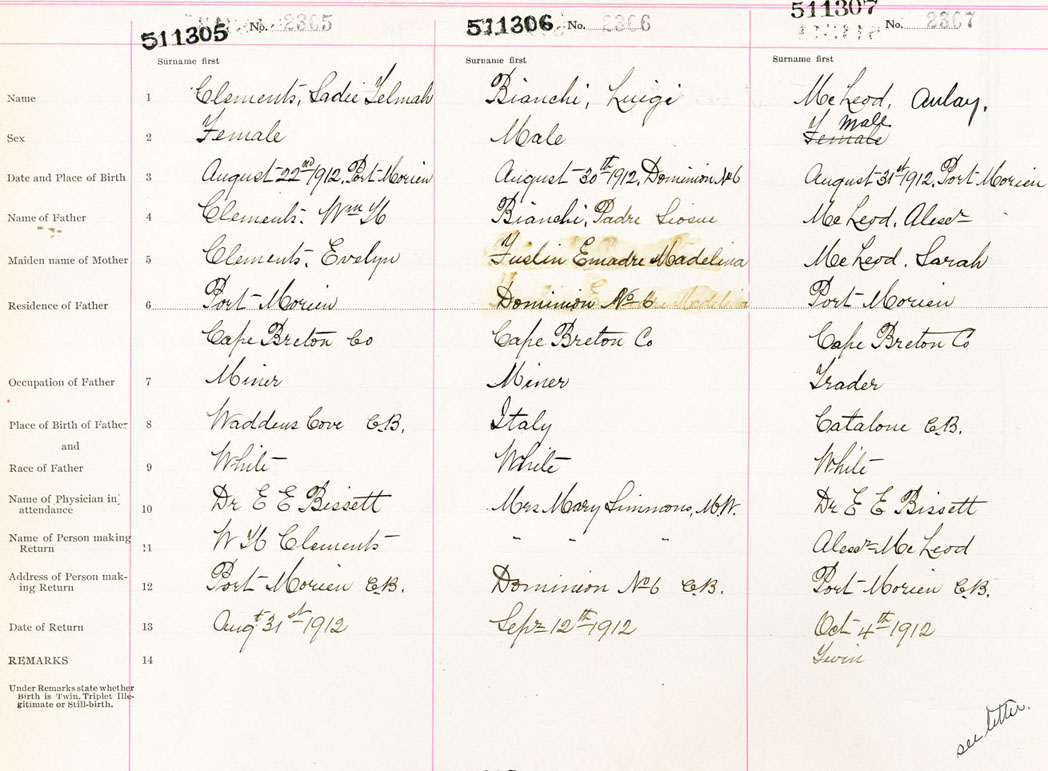 511305 No. 2365 511306 No. 2366 511307 No. 2367
Surname first Surname first Surname first
Name 1 Clements, Sadie Telmah Bianchi, Luigi McLeod, Aulay.
Male
Sex 2 Female Male Female
Date and Place of Birth 3 August 22nd 1912, Port Morien August 30th 1912, Dominion No 6 August 31st 1912, Port Morien
Name of Father 4 Clements, Wm H Bianchi, Padre Giosue McLeod, Alexr
Maiden name of Mother 5 Clements, Evelyn Emadre Madelina McLeod, Sarah
Residence of Father 6 Port Morien Dominion No 6 Port Morien
Cape Breton Co Cape Breton Co Cape Breton Co
Occupation of Father 7 Miner Miner Trader
Place of Birth of Father 8 Waddens Cove C.B. Italy Catalone C.B.
and
Race of Father 9 White White White
Name of Physician in
attendance 10 Dr E E Bissett Mrs Mary Simmons, M.W. Dr E E Bissett
Name of Person making
Return 11 W H Clements " " " Alexr McLeod
Address of Person mak-
ing Return 12 Port Morien C.B. Dominion No 6 C.B. Port Morien C.B.
Date of Return 13 Augt 31st 1912 Sepr 12th 1912 Oct 4th 1912
REMARKS 14 Twin
Under Remarks state whether
Birth is Twin, Triplet Ille-
gitimate or Still-birth.
see letter.